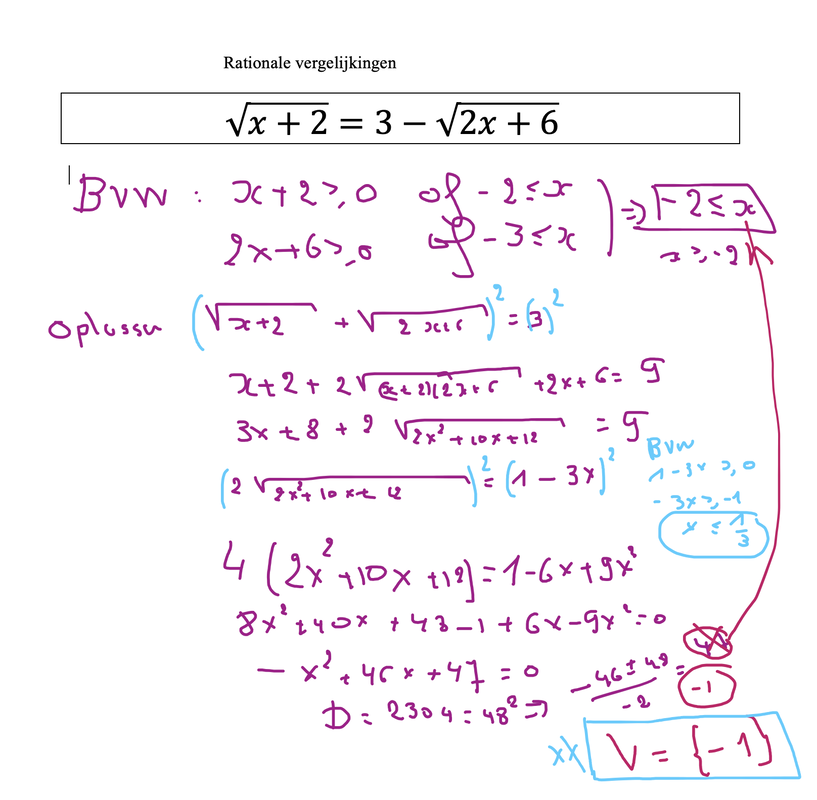 Rationale vergelijkingen
√(x + 2) = 3 − √(2x + 6)
BVW : x+2 ⩾ 0 of -2 ≤ x
2x+6 ⩾ 0 of -3 ≤ x ) ⇒ -2 ≤ x
x ⩾ -2
Oplossen (√(x+2) + √(2x+6))² = (3)²
x+2+2√((x+2)(2x+6)) +2x+6 = 9
3x+8+2√(2x²+10x+12) = 9
(2√(2x²+10x+12))² = (1-3x)²
BVW
1-3x ⩾ 0
-3x ⩾ -1
x ≤ 1/3
4(2x²+10x+12) = 1-6x+9x²
8x²+40x+48-1+6x-9x² = 0
-x²+46x+47 = 0
D = 2304 = 48² ⇒ (-46±48)/-2 =
-1
XX V = {-1}